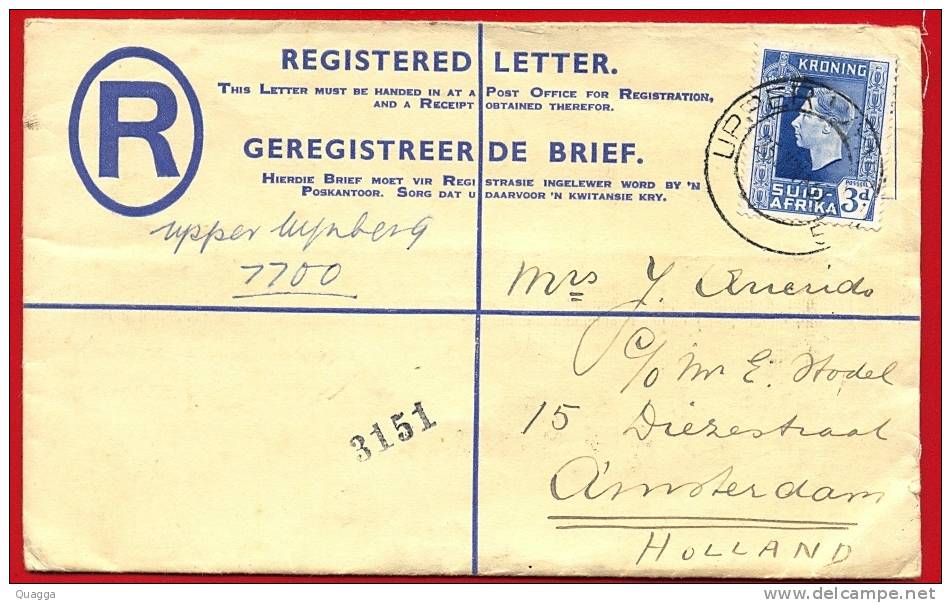 R
REGISTERED LETTER.
THIS LETTER MUST BE HANDED IN AT A POST OFFICE FOR REGISTRATION,
AND A RECEIPT OBTAINED THEREFOR.
GEREGISTREERDE BRIEF.
HIERDIE BRIEF MOET VIR REGISTRASIE INGELEWER WORD BY 'N
POSKANTOOR. SORG DAT U DAARVOOR 'N KWITANSIE KRY.
KRONING
SUID-
AFRIKA
POSSEËL
3d.
UPPER
upper Wynberg
7700
Mrs J. Querido
c/o Mr E. Hodel
15 Diezestraat
Amsterdam
HOLLAND
3151
Quagga
delcampe.net